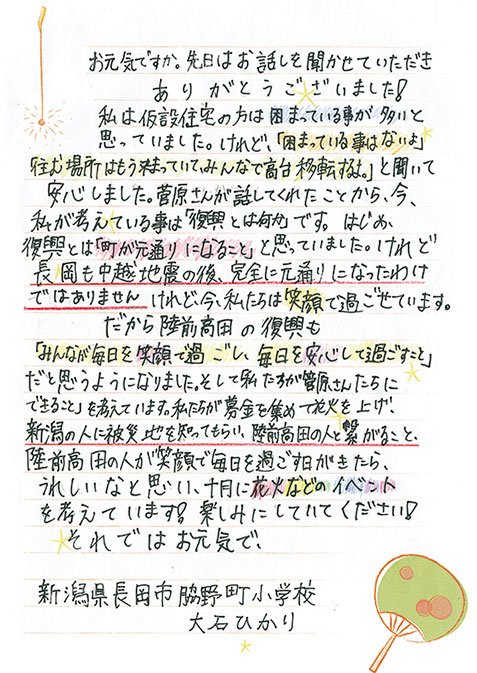 お元気ですか。先日はお話しを聞かせていただき
ありがとうございました！
私は仮設住宅の方は困まっている事が多いと
思っていました。けれど、「困まっている事はないよ」
「住む場所はもう決まっていて、みんなで高台移転するよ。」と聞いて
安心しました。菅原さんが話してくれたことから、今、
私が考えている事は「復興とは何か」です。はじめ、
復興とは「町が元通りになること」と思っていました。けれど
長岡も中越地震の後、完全に元通りになったわけ
ではありません けれど、今、私たちは笑顔で過ごせています。
だから陸前高田の復興も
「みんなが毎日を笑顔で過ごし、毎日を安心して過ごすこと」
だと思うようになりました。そして「私たちが菅原さんたちに
できること」を考えています。私たちが募金を集めて花火を上げ、
新潟の人に被災地を知ってもらい、陸前高田の人と繋がること、
陸前高田の人が笑顔で毎日を過ごす日がきたら、
うれしいなと思い、十月に花火などのイベント
を考えています！楽しみにしていてください！
それではお元気で、
新潟県長岡市脇野町小学校
大石ひかり